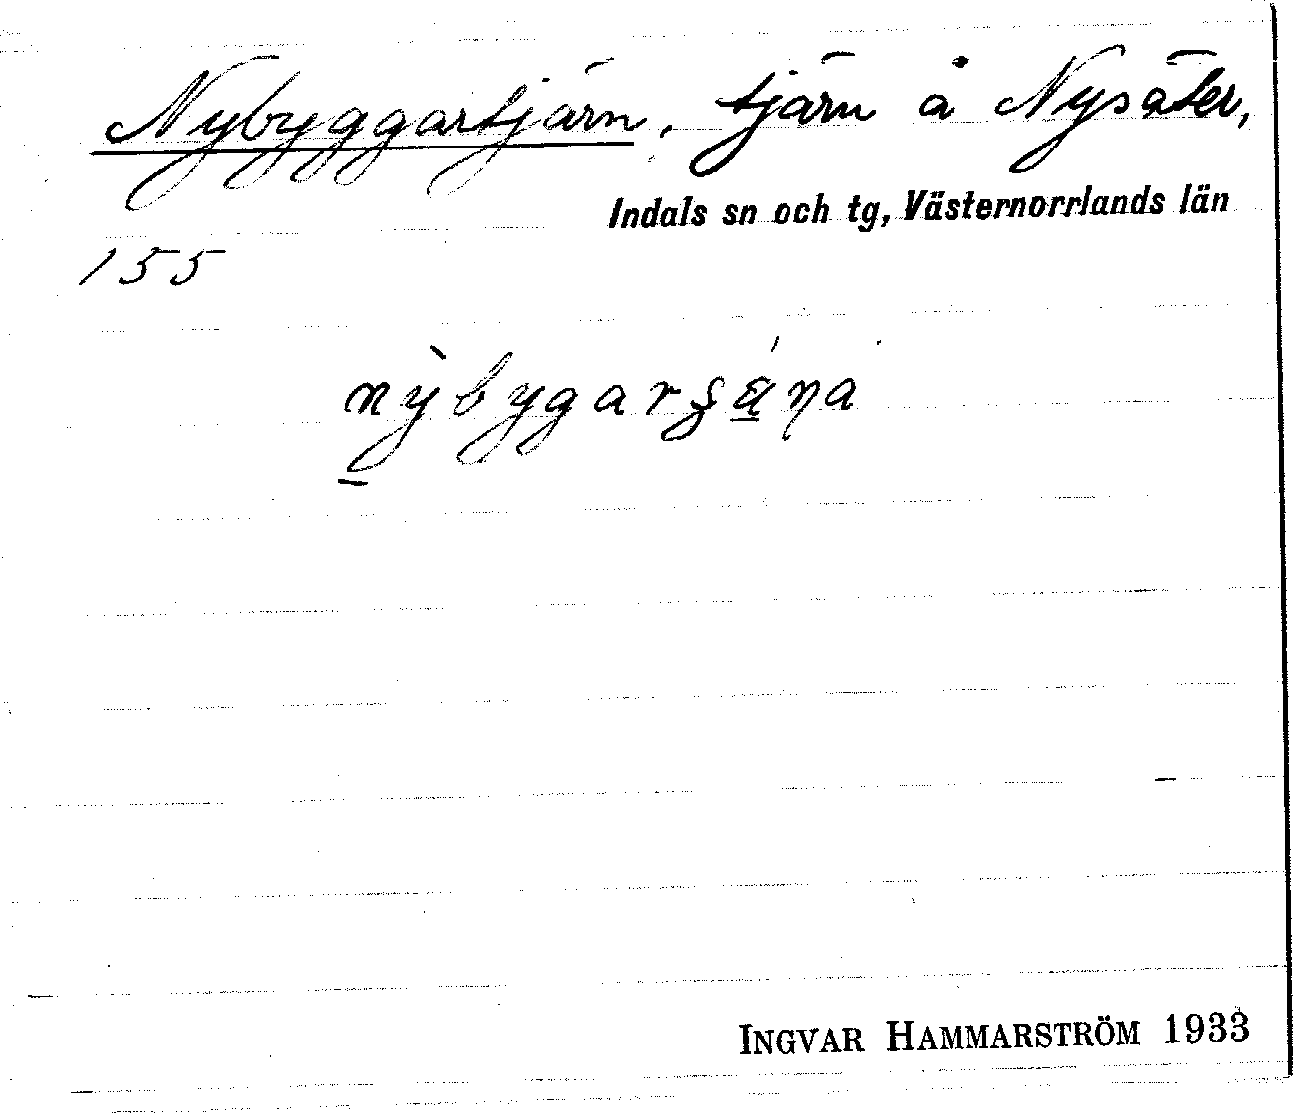 Nybyggartjärn, tjärn å Nysäter,
Indals sn och tg, Västernorrlands län
155
nỳbygarʂá̱ɳa
INGVAR HAMMARSTRÖM 1933